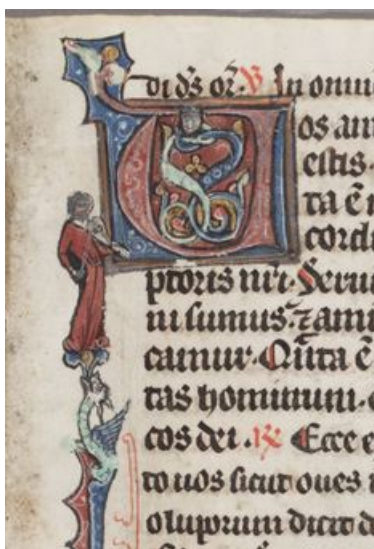 Di ds̄ or̄. V̷ In omni
Vos am
estis.
ta ē
cordi
ptoris nr̄i. Serui
ni sumus. ⁊ ami
camur. Qn̄ta ē
tas hominum.
cos dei. R̷ Ecce e
to uos sicut oues
oluporum dicit d